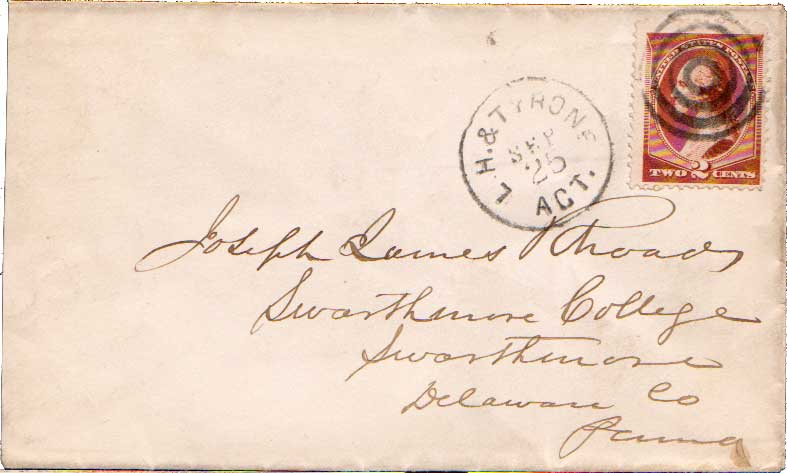 UNITED STATES POSTAGE
TWO 2 CENTS
L. H. & TYRONE
SEP
25
ACT.
Joseph James Rhoads
Swarthmore College
Swarthmore
Delaware Co
Penna